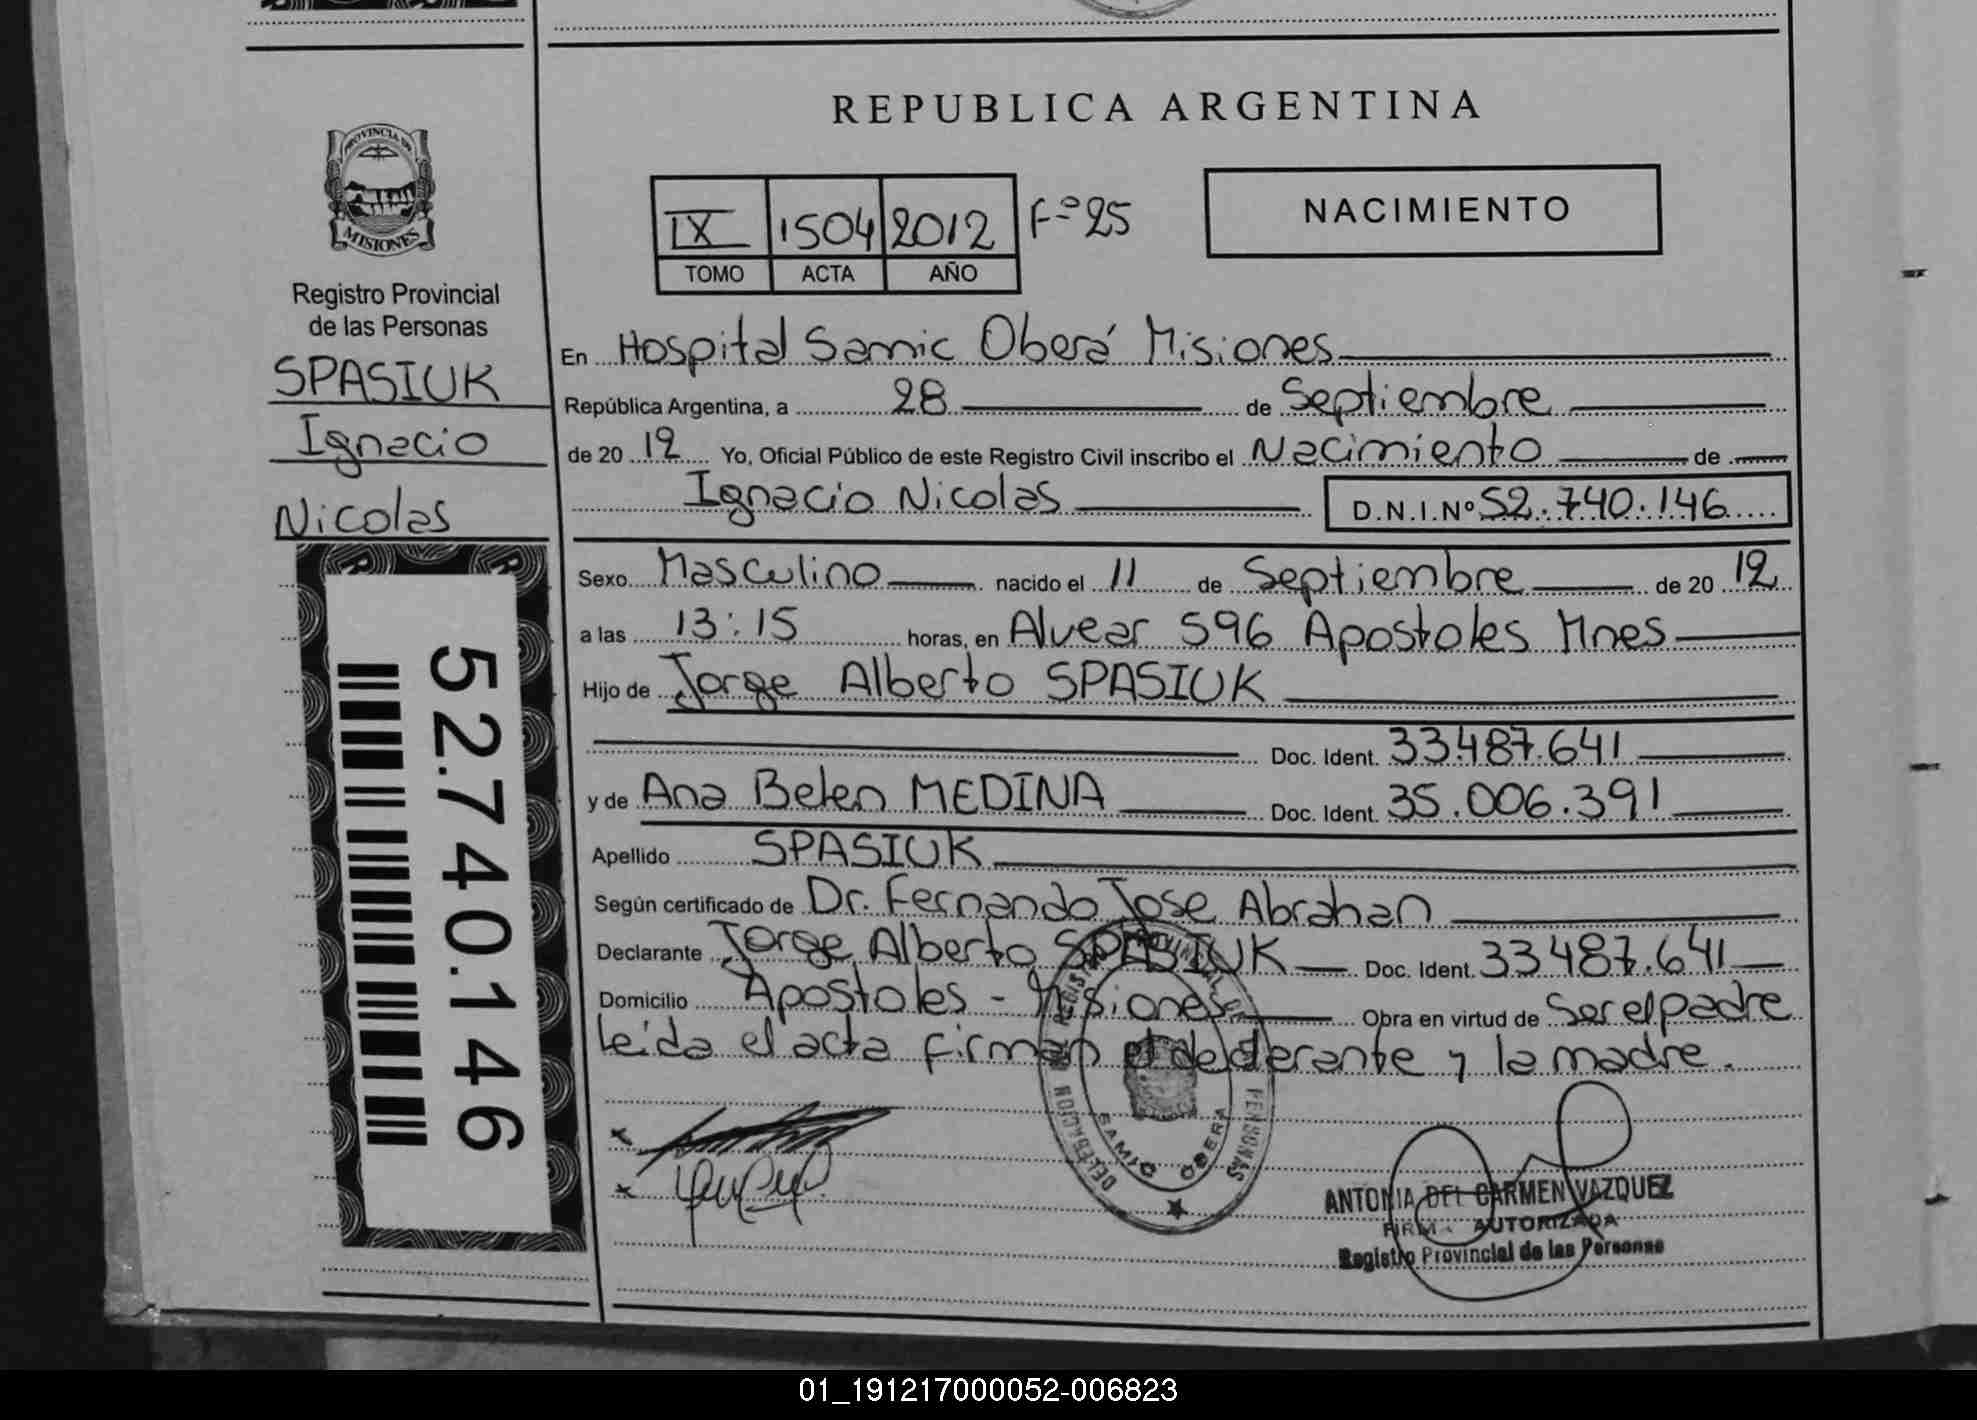 REPUBLICA ARGENTINA
PROVINCIA DE
MISIONES
Registro Provincial
de las Personas
SPASIUK
Ignacio
Nicolas
52.740.146
IX 1504 2012 Fº 25
TOMO ACTA AÑO
NACIMIENTO
En Hospital Samic Oberá Misiones
República Argentina, a 28 de Septiembre
de 2012 Yo, Oficial Público de este Registro Civil inscribo el Nacimiento de
Ignacio Nicolas D.N.I.Nº 52.740.146
Sexo Masculino nacido el 11 de Septiembre de 2012
a las 13:15 horas, en Alvear 596 Apostoles Mnes
Hijo de Jorge Alberto SPASIUK
Doc. Ident. 33.487.641
y de Ana Belen MEDINA Doc. Ident. 35.006.391
Apellido SPASIUK
Según certificado de Dr. Fernando Jose Abrahan
Declarante Jorge Alberto SPASIUK Doc. Ident. 33487.641
Domicilio Apostoles - Misiones Obra en virtud de Ser el padre
leida el acta firman el declarante y la madre.
DELEGACION REGISTRO PROVINCIAL DE PERSONAS
SAMIC OBERA
ANTONIA DEL CARMEN VAZQUEZ
FIRMA AUTORIZADA
Registro Provincial de las Personas
01_191217000052-006823